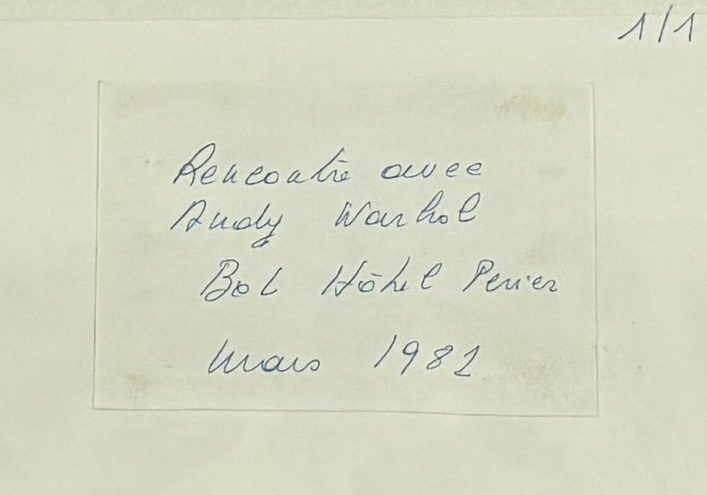 1/1
Rencontre avec
Andy Warhol
Bol Hôtel Perier
Mars 1982